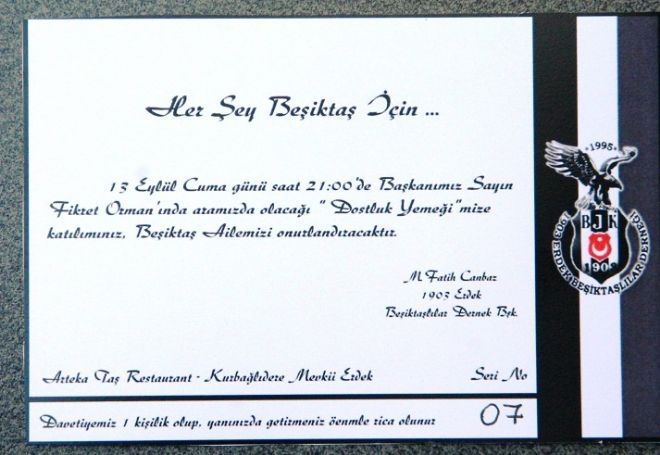 Her Şey Beşiktaş İçin ...
13 Eylül Cuma günü saat 21:00'de Başkanımız Sayın
Fikret Orman'ında aramızda olacağı " Dostluk Yemeği"mize
katılımınız, Beşiktaş Ailemizi onurlandıracaktır.
M.Fatih Canbaz
1903 Erdek
Beşiktaşlılar Dernek Bşk.
Arteka Taş Restaurant - Kurbağlıdere Mevkii Erdek
Seri No
Davetiyemiz 1 kişilik olup, yanınızda getirmeniz öenmle rica olunur
07
1995
BJK
1903
1903 ERDEK BEŞİKTAŞLILAR DERNEĞİ